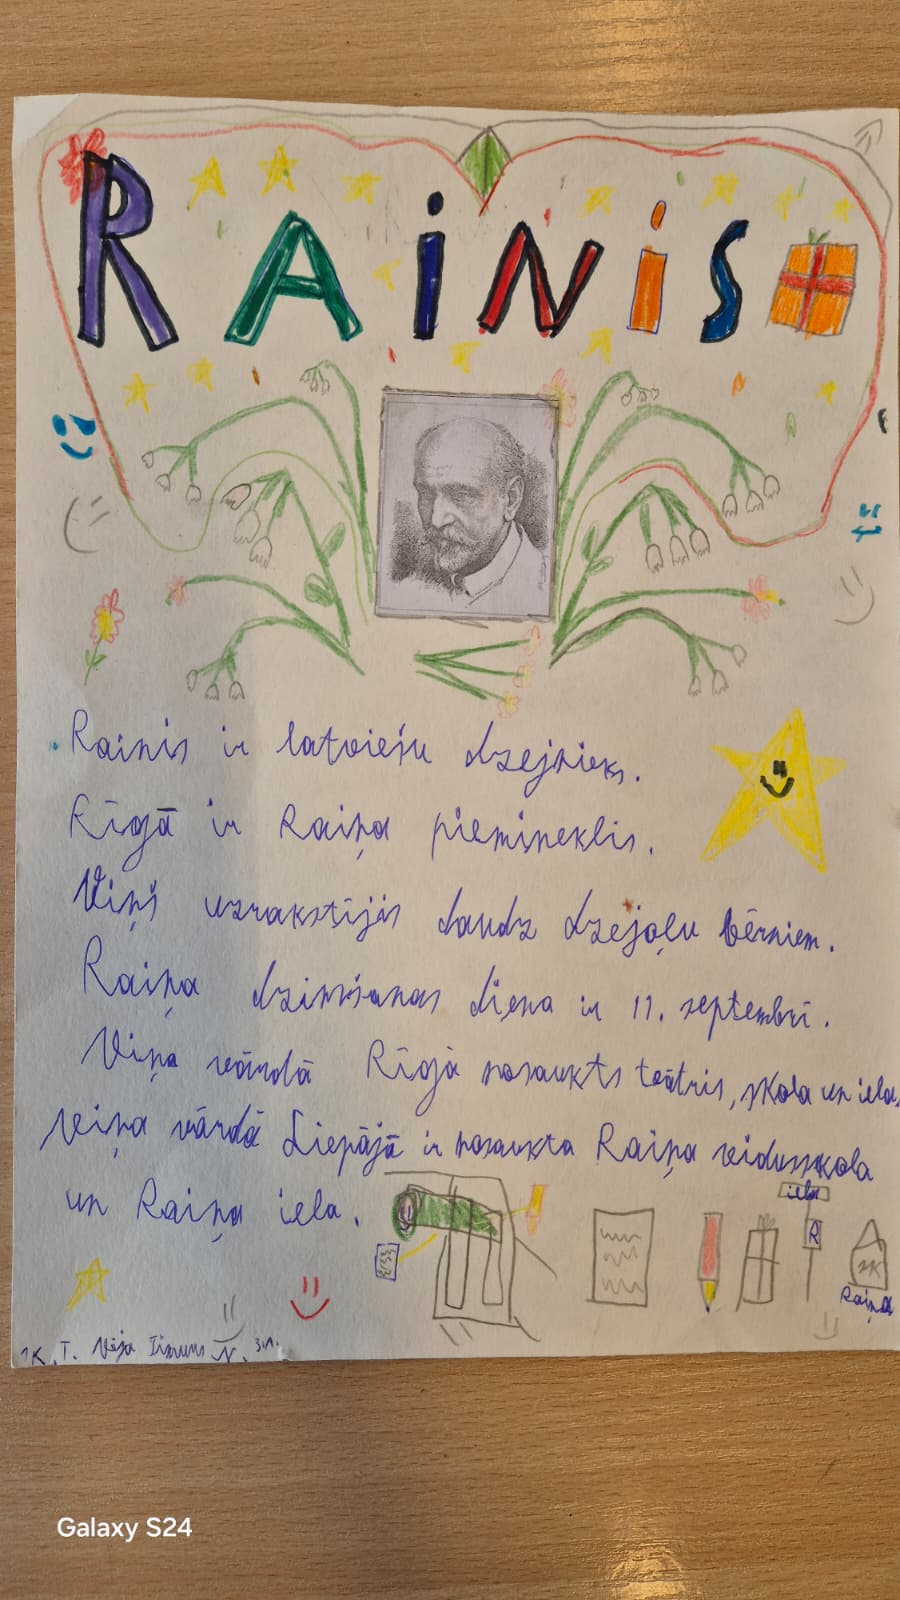 RAINIS
Rainis ir latviešu dzejnieks.
Rīgā ir Raiņa piemineklis.
Viņš uzrakstījis daudz dzejoļu bērniem.
Raiņa dzimšanas diena ir 11. septembrī.
Viņa vārdā Rīgā nosaukts teātris, skola un iela.
Viņa vārdā Liepājā ir nosaukta Raiņa vidusskola
un Raiņa iela.
iela
R
Raiņa
Galaxy S24